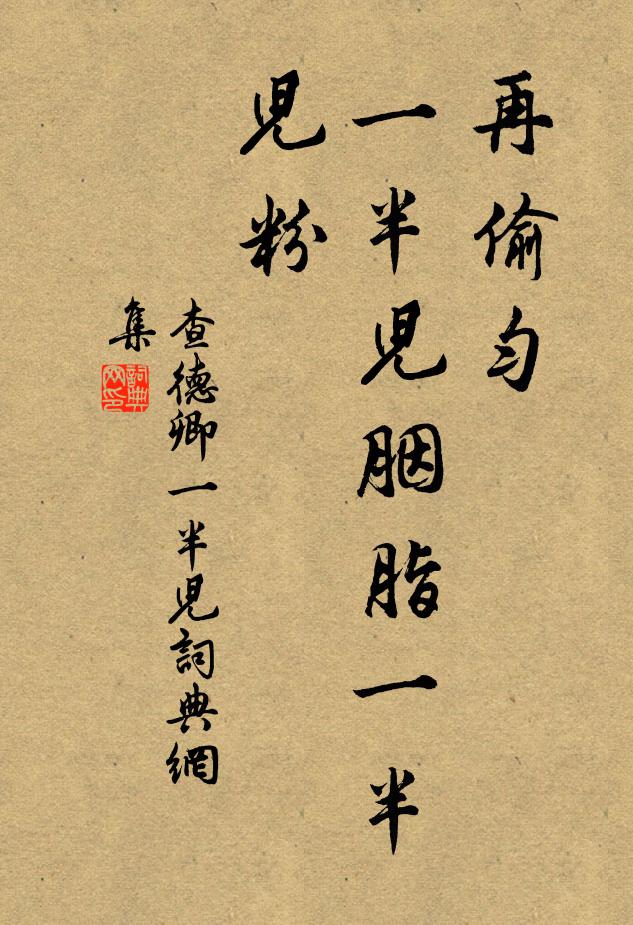 再偷勻
一半兒胭脂一半
兒粉
查德卿一半兒詞典網
集
詞典網印